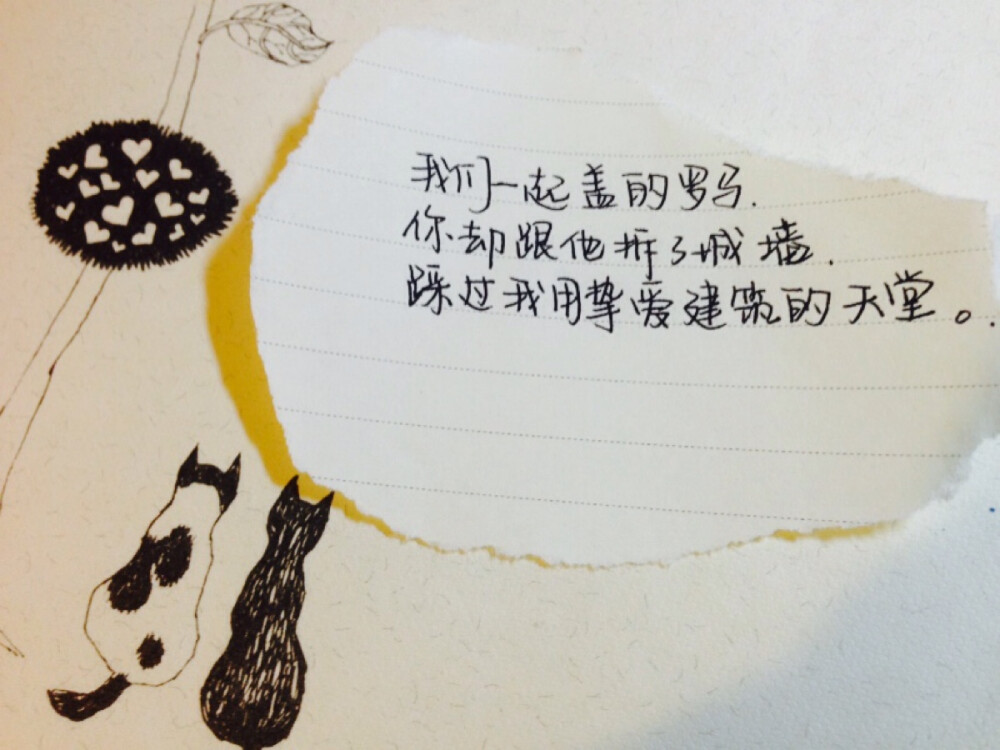 我们一起盖的罗马.
你却跟他拆了城墙.
踩过我用挚爱建筑的天堂。.